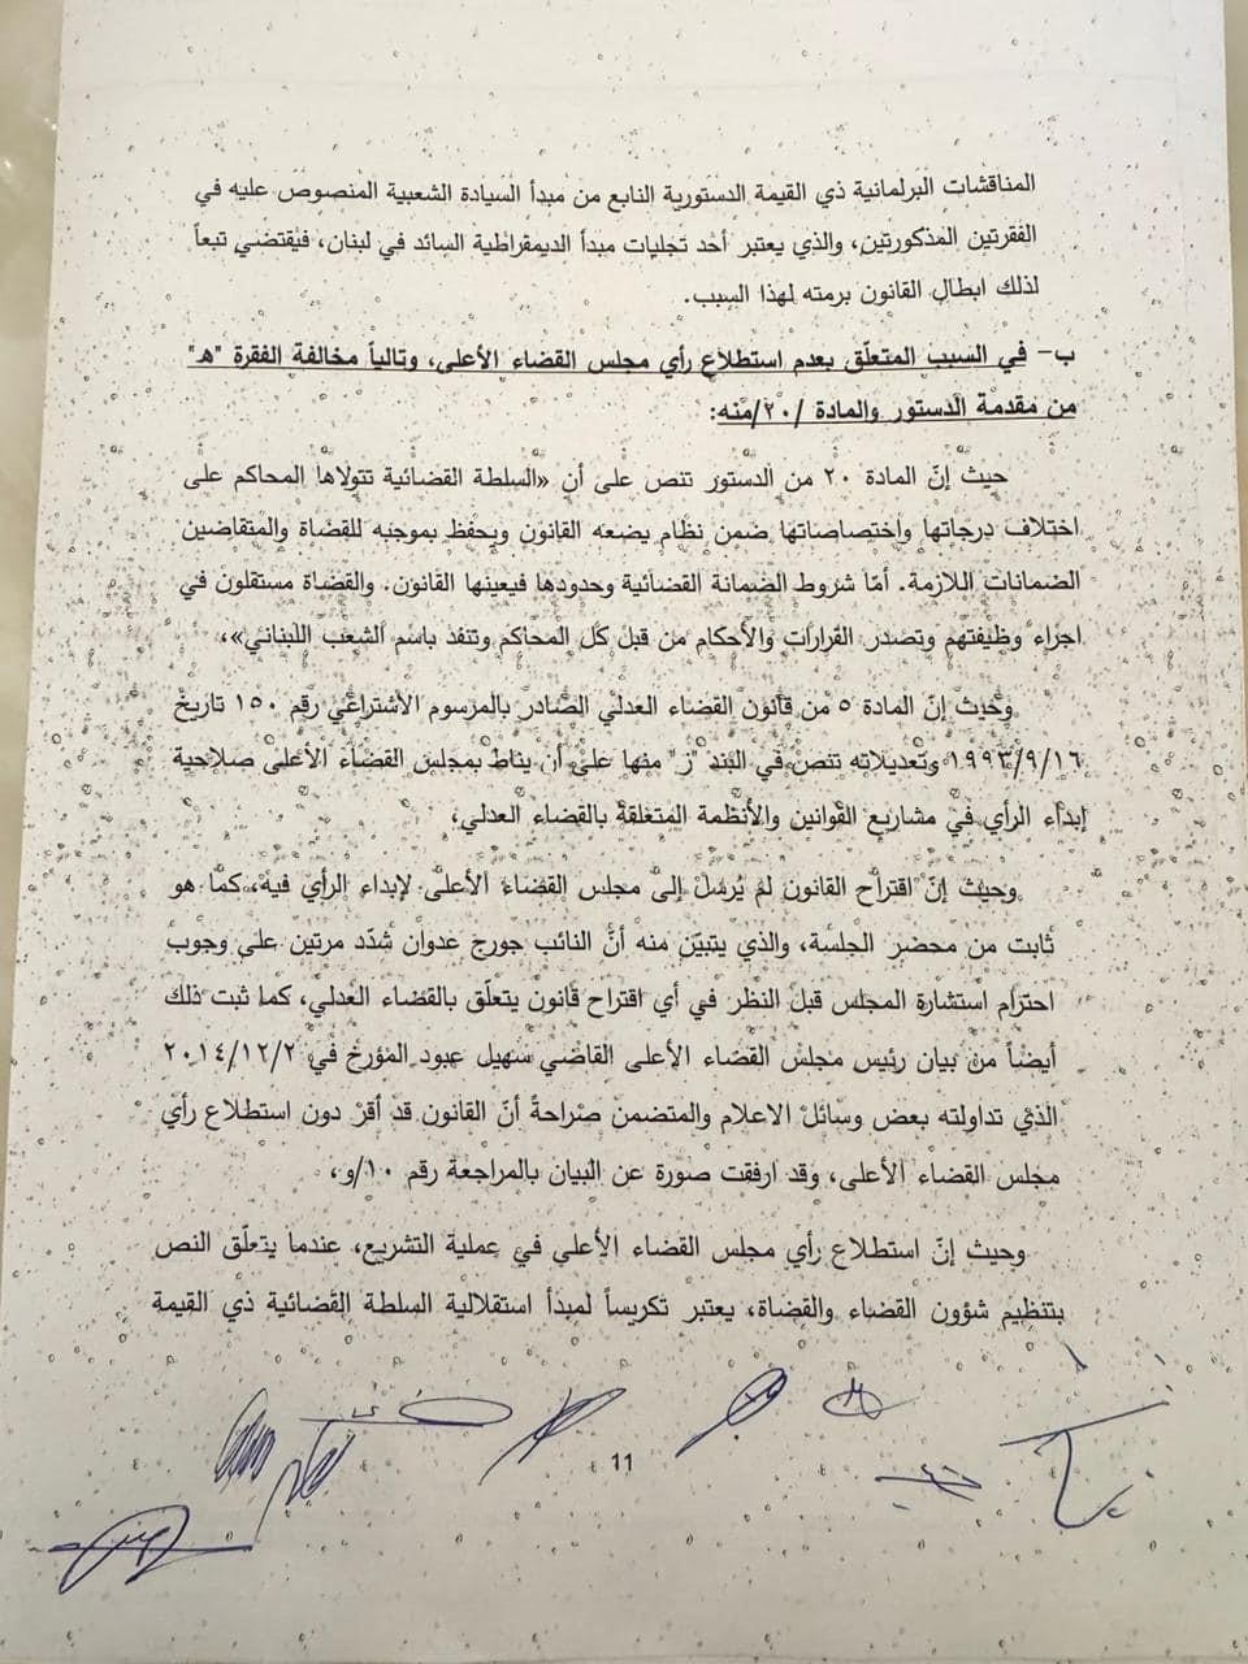 المناقشات البرلمانية ذي القيمة الدستورية النابع من مبدأ السيادة الشعبية المنصوص عليه في
الفقرتين المذكورتين، والذي يعتبر أحد تجليات مبدأ الديمقراطية السائد في لبنان، فيقتضي تبعاً
لذلك ابطال القانون برمته لهذا السبب.
ب- في السبب المتعلّق بعدم استطلاع رأي مجلس القضاء الأعلى، وتالياً مخالفة الفقرة "هـ"
من مقدمة الدستور والمادة /٢٠/منه:
حيث إنّ المادة ٢٠ من الدستور تنص على أن «السلطة القضائية تتولاها المحاكم على
اختلاف درجاتها واختصاصاتها ضمن نظام يضعه القانون ويحفظ بموجبه للقضاة والمتقاضين
الضمانات اللازمة. أمّا شروط الضمانة القضائية وحدودها فيعينها القانون. والقضاة مستقلون في
اجراء وظيفتهم وتصدر القرارات والأحكام من قبل كل المحاكم وتنفذ باسم الشعب اللبناني»،
وحيث إنّ المادة ٥ من قانون القضاء العدلي الصادر بالمرسوم الاشتراعي رقم ١٥٠ تاريخ
١٩٩٣/٩/١٦ وتعديلاته تنص في البند "ز" منها على أن يناط بمجلس القضاء الأعلى صلاحية
إبداء الرأي في مشاريع القوانين والأنظمة المتعلقة بالقضاء العدلي،
وحيث إنّ اقتراح القانون لم يُرسل إلى مجلس القضاء الأعلى لإبداء الرأي فيه، كما هو
ثابت من محضر الجلسة، والذي يتبيّن منه أنّ النائب جورج عدوان شدّد مرتين على وجوب
احترام استشارة المجلس قبل النظر في أي اقتراح قانون يتعلّق بالقضاء العدلي، كما ثبت ذلك
أيضاً من بيان رئيس مجلس القضاء الأعلى القاضي سهيل عبود المؤرخ في ٢٠١٤/١٢/٢
الذي تداولته بعض وسائل الاعلام والمتضمن صراحةً أنّ القانون قد أقرّ دون استطلاع رأي
مجلس القضاء الأعلى، وقد ارفقت صورة عن البيان بالمراجعة رقم ١٠/و،
وحيث إنّ استطلاع رأي مجلس القضاء الأعلى في عملية التشريع، عندما يتعلّق النص
بتنظيم شؤون القضاء والقضاة، يعتبر تكريساً لمبدأ استقلالية السلطة القضائية ذي القيمة
11